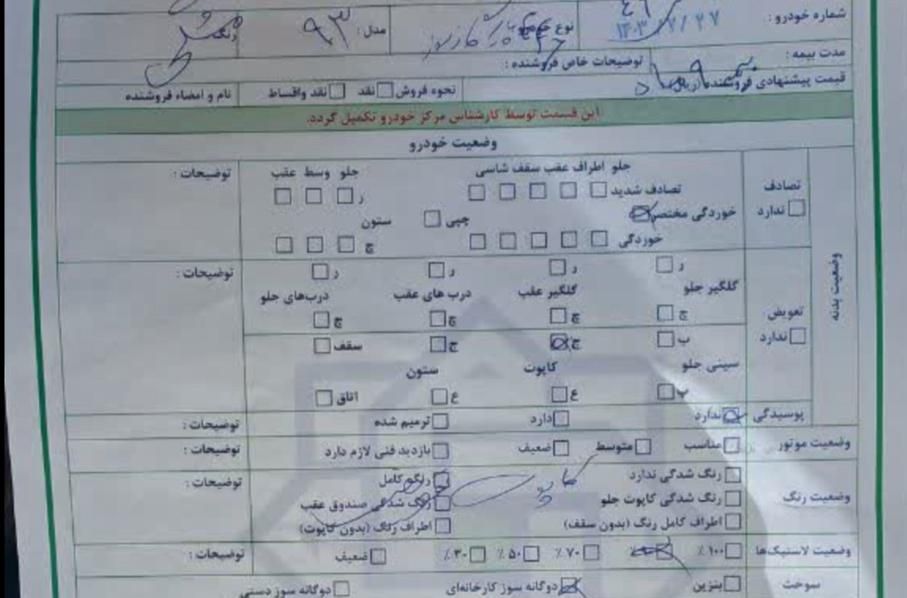 شماره خودرو : نوع خودرو پارس دوگانه سوز مدل : ۹۳ رنگ
۱۴۰۳/۷/۲۷
مدت بیمه : توضیحات خاص فروشنده :
قیمت پیشنهادی فروشنده (ریال) نحوه فروش □ نقد □ نقد واقساط نام و امضاء فروشنده
این قسمت توسط کارشناس مرکز خودرو تکمیل گردد.
وضعیت خودرو
وضعیت بدنه
تصادف □ ندارد
جلو اطراف عقب سقف شاسی جلو وسط عقب توضیحات :
تصادف شدید □ □ □ □ □ ر □ □ □
خوردگی مختصر ☒ چپی □ ستون
خوردگی □ □ □ □ □ چ □ □ □
تعویض □ ندارد
ر □ ر □ ر □ ر □ توضیحات :
گلگیر جلو گلگیر عقب درب های عقب درب‌های جلو
چ □ چ □ چ □ چ □
ب □ ج ☒ ج □ سقف □
سینی جلو کاپوت ستون
پ □ ع □ ع □ اتاق □
پوسیدگی ☒ ندارد □ دارد □ ترمیم شده توضیحات :
وضعیت موتور □ مناسب □ متوسط □ ضعیف □ بازدید فنی لازم دارد توضیحات :
وضعیت رنگ □ رنگ شدگی ندارد □ رنگ کامل توضیحات :
کاپوت
□ رنگ شدگی کاپوت جلو □ رنگ شدگی صندوق عقب
□ اطراف کامل رنگ (بدون سقف) □ اطراف رنگ (بدون کاپوت)
وضعیت لاستیک‌ها □ ۱۰۰ ٪ ☒ □ ۷۰ ٪ □ ۵۰ ٪ □ ۳۰ ٪ □ ضعیف توضیحات :
سوخت □ بنزین ☒ دوگانه سوز کارخانه‌ای □ دوگانه سوز دستی